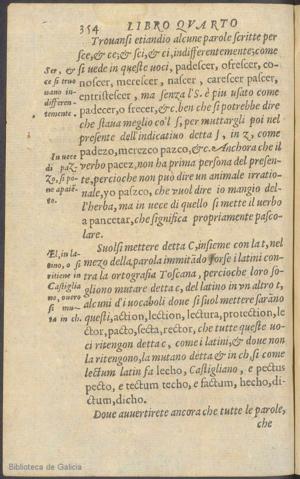 354 LIBRO QVARTO
Trouansi etiandio alcune parole scritte per
sce, & ce; & sci, & ci, indifferentemente; come
si uede in queste uoci, padescer, ofrescer, co-
noscer, merescer, nascer, carescer pascer,
entristescer, ma senza l'S. è piu usato come
padecer, o frecer, & c. ben che si potrebbe dire
che staua meglio co'l S, per muttargli poi nel
presente dell'indicatiuo detta S, in z, come
padezo, merezco pazco, & c. Anchora che il
verbo pacez, non ha prima persona del presen-
te, percioche non può dire un animale irratio-
nale, yo paszco, che vuol dire io mangio del-
l'herba, ma in uece di quello si mette il uerbo
a pancetar, che significa propriamente pasco-
lare.
Suolsi mettere detta C, insieme con la t, nel
mezo della parola immitãdo forse i latini con-
tra la ortografia Toscana, percioche loro so-
gliono mutare detta c, del latino in vn altro t,
alcuni d'i uocaboli doue si suol mettere sarãno
questi, action, lection, lectura, protection, le
ctor, pacto, secta, rector, che tutte queste uo-
ci ritengon detta c, come i latini, & doue non
la ritengono, la mutano detta & in ch, si come
lectum latin fa lecho, Castigliano, e pectus
pecto, e tectum techo, e factum, hecho, di-
ctum, dicho.
Doue auuertirete ancora che tutte le parole,
che
Scr, & 
ce si truo
uano in-
differen-
temente.
In uece
di paz-
Zo, si po-
ne apaiẽ-
to.
Æl, in la-
tino, o si
ritiene in
Castiglia
no, ouero
si mu-
ta in ch.
Biblioteca de Galicia